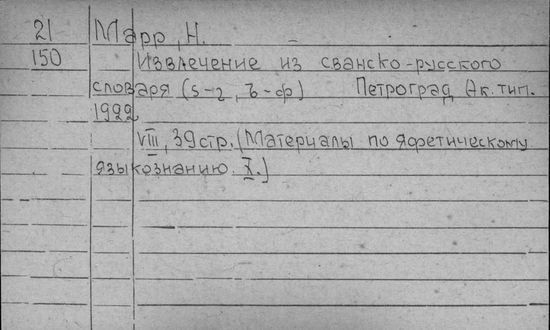 21 Марр, Н.
150 Извлечение из сванско-русского
словаря (s-г, ъ-ф) Петроград Ак. тип.
1922
VIII, 39 стр. (Материалы по яфетическому
языкознанию. X.)